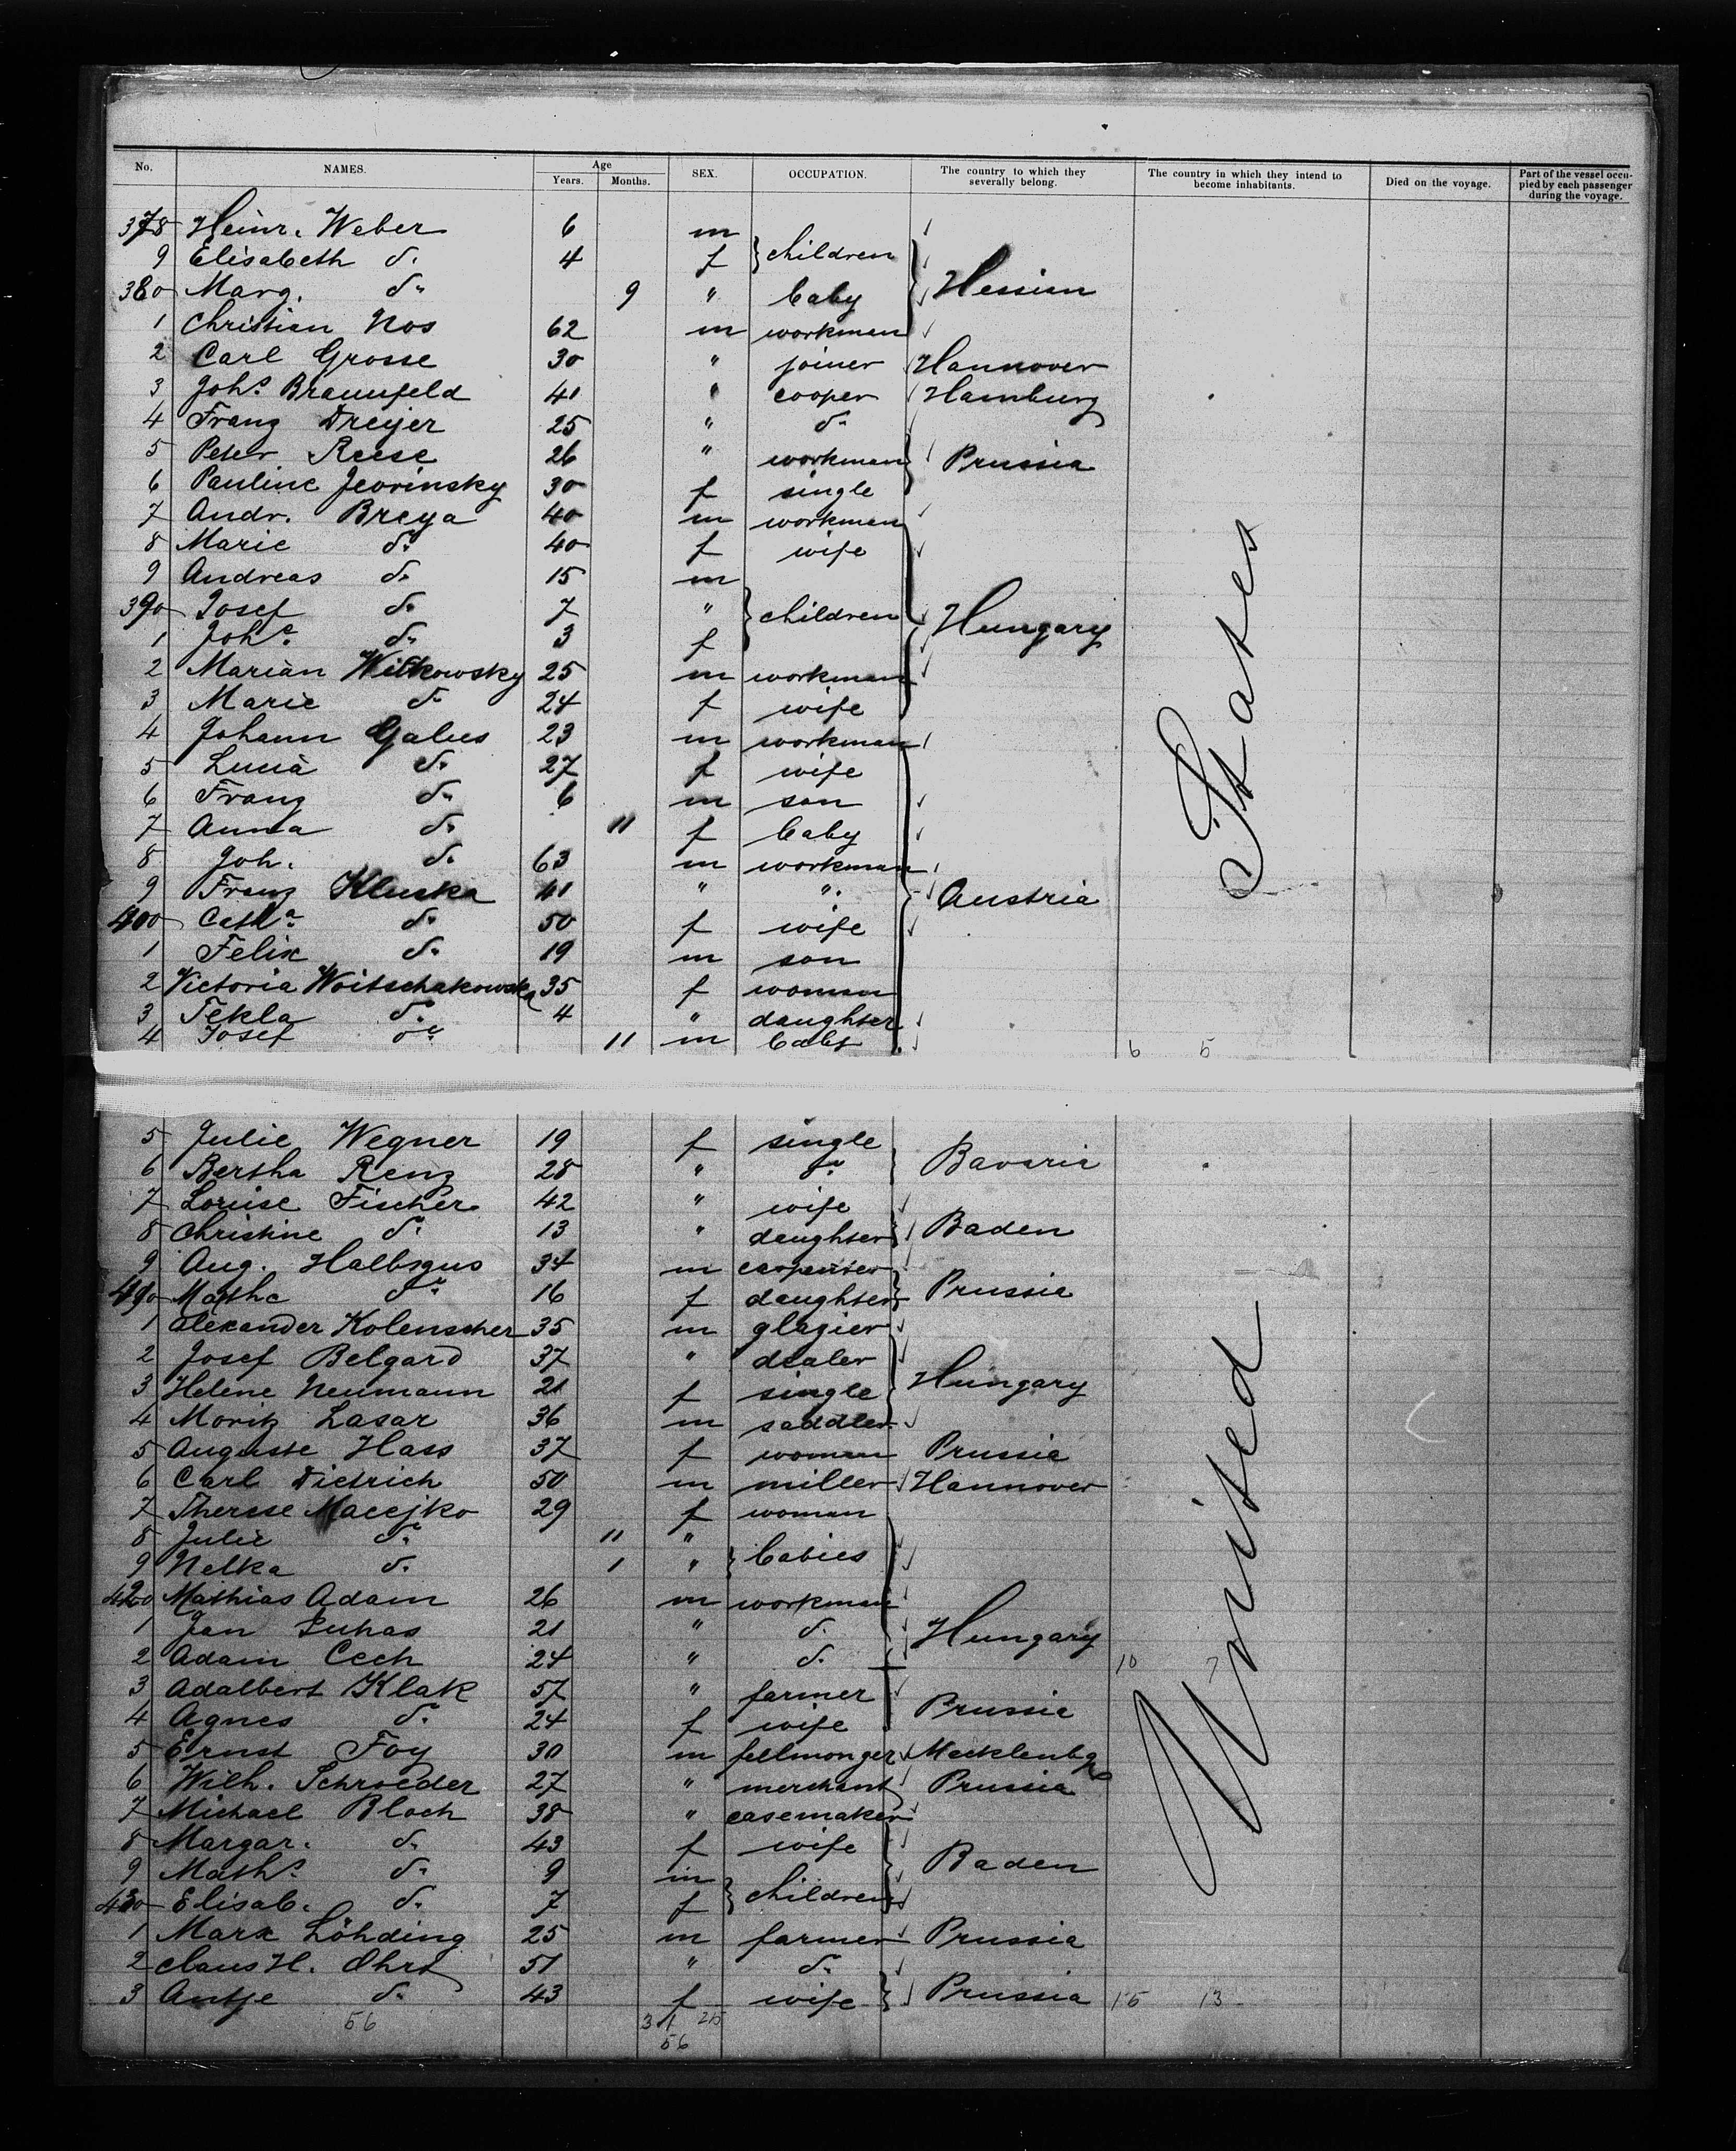 No. NAMES. Age Years. Months. SEX. OCCUPATION. The country to which they severally belong. The country in which they intend to become inhabitants. Died on the voyage. Part of the vessel occupied by each passenger during the voyage.
378 Heinr. Weber 6 m
9 Elisabeth do. 4 f } children
380 Marg. do. 9 " baby Hessian
1 Christian Nos 62 m workman
2 Carl Grosse 30 " joiner Hannover
3 Johs. Braunfeld 41 " cooper Hamburg
4 Franz Dreyer 25 " do.
5 Peter Reese 26 " workman Prussia
6 Pauline Jevrinsky 30 f single
7 Andr. Breya 40 m workman
8 Marie do. 40 f wife
9 Andreas do. 15 m
390 Josef do. 7 " } children Hungary
1 Johe. do. 3 f
2 Marian Witkowsky 25 m workman
3 Marie do. 24 f wife
4 Johann Galus 23 m workman
5 Lucia do. 27 f wife
6 Franz do. 6 m son
7 Anna do. 11 f baby
8 Joh. do. 63 m workman
9 Franz Kluska 41 " " Austria
400 Catha. do. 50 f wife
1 Felix do. 19 m son
2 Victoria Woitschakowska 35 f woman
3 Tekla do. 4 " daughter
4 Josef do. 11 m baby 6 5
5 Julie Wegner 19 f single
6 Bertha Renz 28 " do. Bavaria
7 Louise Fischer 42 " wife
8 Christine do. 13 " daughter Baden
9 Aug. Halbsgus 34 m carpenter
410 Mathe do. 16 f daughter Prussia
1 Alexander Kolenscher 35 m glazier
2 Josef Belgard 37 " dealer
3 Helene Neumann 21 f single Hungary
4 Moritz Lasar 36 m saddler
5 Auguste Hass 37 f woman Prussia
6 Carl Dietrich 50 m miller Hannover
7 Therese Macejko 29 f woman
8 Julie do. 11 "
9 Nelka do. 1 " } babies
420 Mathias Adam 26 m workman
1 Jan Suhas 21 " do. Hungary
2 Adam Cech 24 " do. 10 7
3 Adalbert Klak 57 " farmer
4 Agnes do. 24 f wife Prussia
5 Ernst Foy 30 m fellmonger Mecklenbg
6 Wilh. Schroeder 27 " merchant Prussia
7 Michael Bloch 38 " casemaker
8 Margar. do. 43 f wife
9 Maths. do. 9 m Baden
430 Elisab. do. 7 f } children
1 Marx Löhding 25 m farmer Prussia
2 Claus H. Ohrt 51 " do.
3 Antje do. 43 f wife Prussia 15 13
56 31 25
56
United States